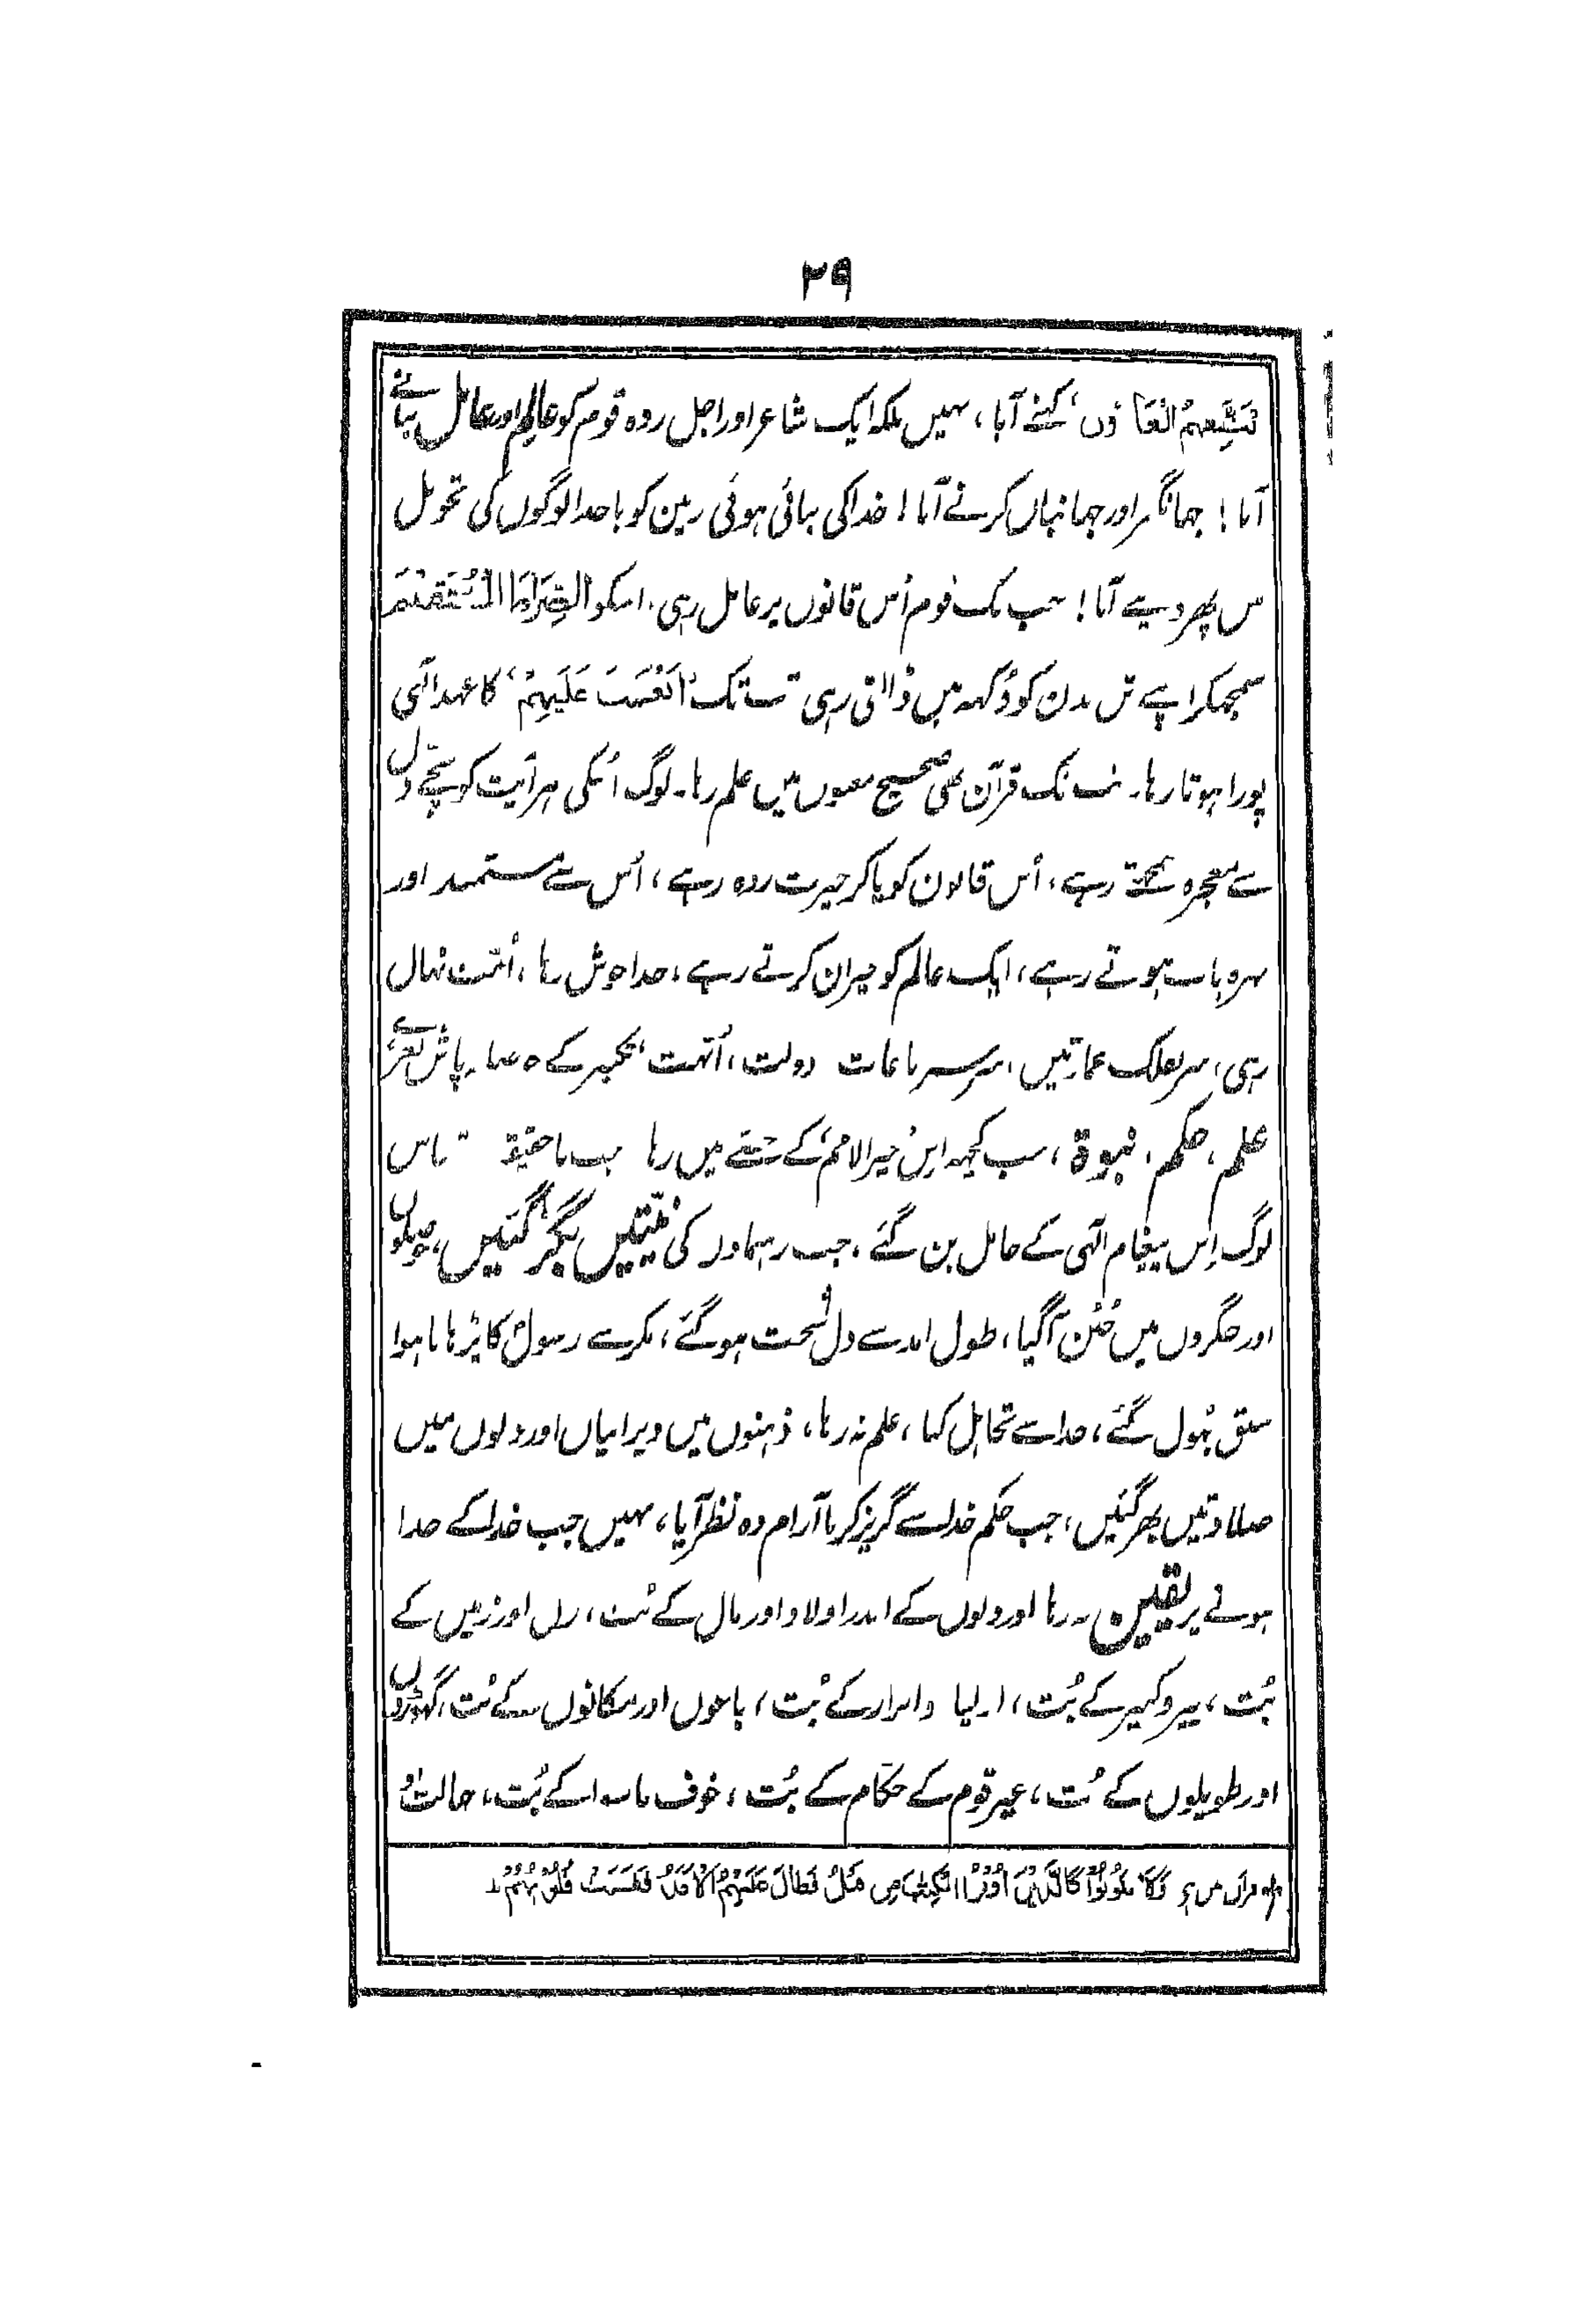 ۲۹
یَتَّبِعُهُمُ الْغَاوٗن‘ کہنے آیا، نہیں بلکہ ایک شاعر اور اجل زدہ قوم کو عالِم اور عامل بنانے
آیا! جہانگیر اور جہانباں کرنے آیا! خدا کی بنائی ہوئی زمین کو باخدا لوگوں کی تحویل
میں پھر دینے آیا! جب تک قوم اُس قانون پر عامل رہی، اسکو الصِّرَاطَ الْمُسْتَقِیْمَ
سمجھکر اپنے تن بدن کو دُکھ میں ڈالتی رہی تب تک ’اَنْعَمْتَ عَلَیْہِمْ‘ کا عہد الٰہی
پورا ہوتا رہا۔ تب تک قرآن بھی صحیح معنوں میں علم رہا۔ لوگ اُسکی ہر آیت کو سچّے دل
سے معجزہ سمجھتے رہے، اُس قانون کو پا کر حیرت زدہ رہے، اُس سے مستفید اور
بہرہ یاب ہوتے رہے، ایک عالم کو حیران کرتے رہے، خدا خوش رہا، اُمّت نہال
رہی، سر بفلک عمارتیں، سرسبز باغات دولت، اُمّت، تکبیر کے پاش نعرے،
علم، حکم، نبوۃ، سب کچھ اِس خیر الامم کے حصّے میں رہا جب ناحقیقت شناس
لوگ اِس پیغام الٰہی کے حامل بن گئے، جب رہنماؤں کی نیّتیں بگڑ گئیں، پہلوؤں
اور جگروں میں جُبن آ گیا، طول امد سے دل سخت ہو گئے، مکر سے رسولؐ کا پڑہایا ہوا
سبق بُھول گئے، خدا سے تجاہل کیا، علم نہ رہا، ذہنوں میں ویرانیاں اور دلوں میں
ضلالتیں بھر گئیں، جب حکم خدا سے گریز کرنا آرام دہ نظر آیا، نہیں جب خدا کے خدا
ہونے پر یقین نہ رہا اور دلوں کے اندر اولاد اور مال کے بُت، زن اور زمین کے
بُت، پیر و کبیر کے بُت، اولیا و ابرار کے بُت، باغوں اور مکانوں کے بُت، گھوڑوں
اور طویلوں کے بُت، غیر قوم کے حکّام کے بُت، خوف ماسوا کے بُت، حالت
قرآن میں ہے وَلَا یَکُوْنُوْا کَالَّذِیْنَ اُوْتُوا الْکِتٰبَ مِنْ قَبْلُ فَطَالَ عَلَیْہِمُ الْاَمَدُ فَقَسَتْ قُلُوْبُہُمْ ۔